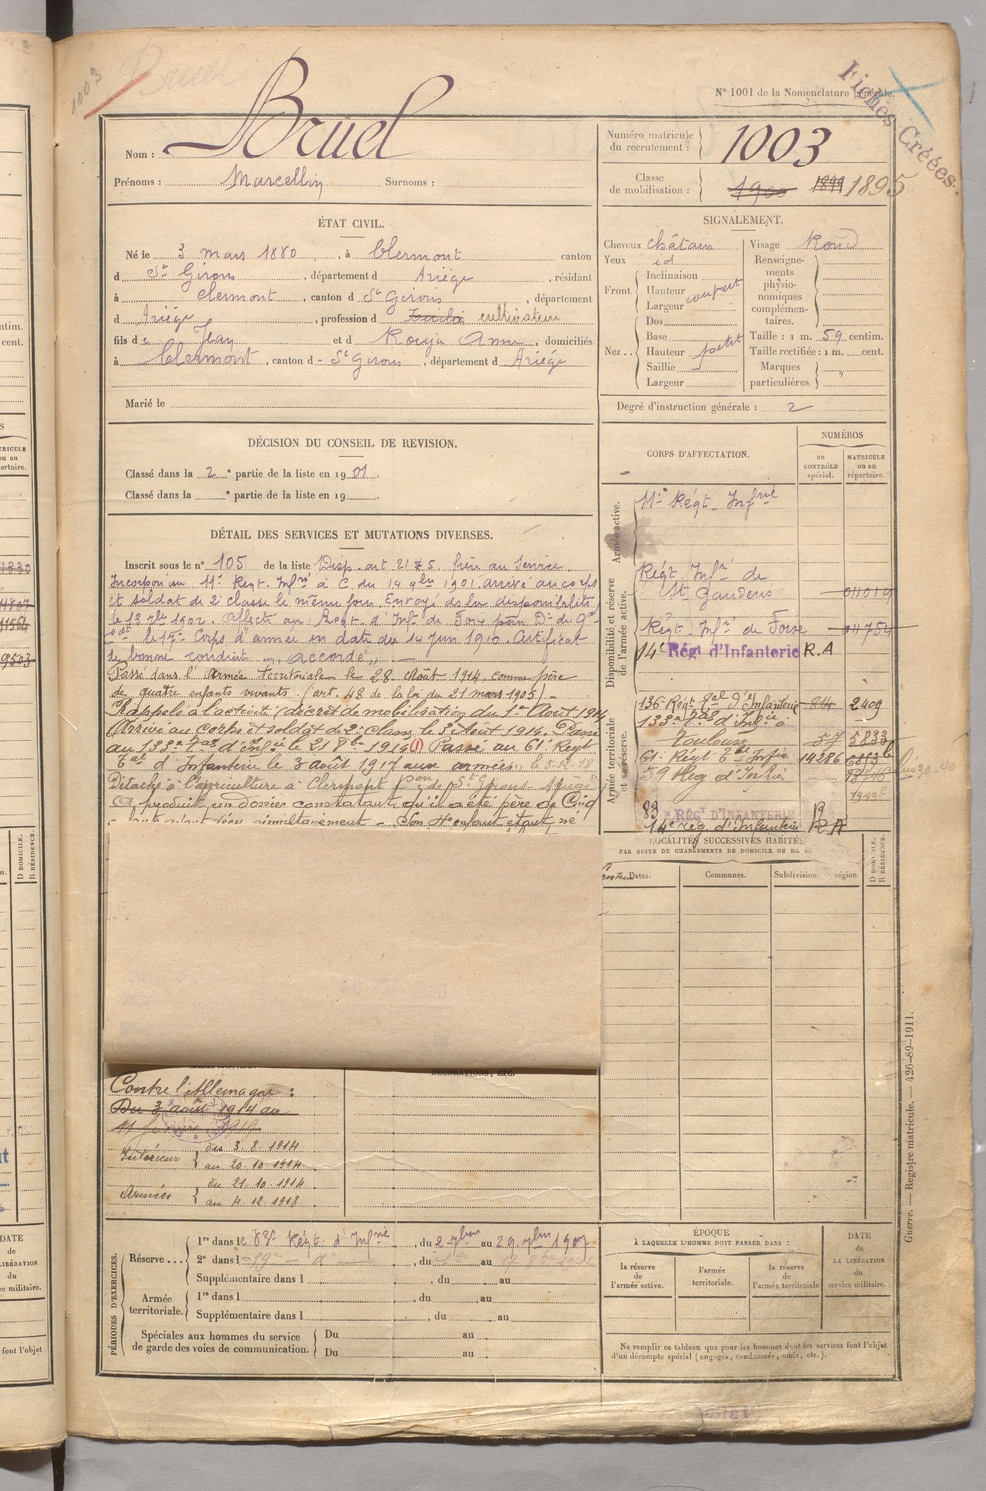 1003
Bruel
N° 1001 de la Nomenclature générale.
Fiches Créées.
Nom : Bruel
Prénoms : Marcellin Surnoms :
Numéro matricule du recrutement : 1003
Classe de mobilisation : 1900 1899 1895
ÉTAT CIVIL.
Né le 3 mars 1880, à Clermont canton
d St Girons, département d Ariège, résidant
à Clermont, canton d St Girons, département
d Ariège, profession d cultivateur
fils de Jean et d Rouja Anne, domiciliés
à Clermont, canton d St Girons, département d Ariège
Marié le
SIGNALEMENT.
Cheveux châtain
Yeux id
Front Inclinaison
Hauteur
Largeur
Nez Dos
Base
Hauteur petit
Saillie
Largeur
Visage Rond
Renseignements physionomiques complémentaires.
Taille : 1 m. 59 centim.
Taille rectifiée : 1 m. cent.
Marques particulières.
Degré d'instruction générale : 2
DÉCISION DU CONSEIL DE REVISION.
Classé dans la 2e partie de la liste en 1901.
Classé dans la e partie de la liste en 19
DÉTAIL DES SERVICES ET MUTATIONS DIVERSES.
Inscrit sous le n° 105 de la liste Disp. art 21 frère au Service
Incorporé au 11e Régt. Infrie à C. du 14 9bre 1901 arrivé au corps
et soldat de 2e classe le même jour Envoyé dans la disponibilité
le 13 1902. Affecté au Régt. d'Inf. de Foix
le 17e Corps d'armée en date du 14 Juin 1910 Certificat
de bonne conduite "accordé"
Passé dans l'armée territoriale le 28 Août 1914, comme père
de quatre enfants vivants (art. 48 de la loi du 21 mars 1905)
Rappelé à l'activité (décret de mobilisation du 1er Août 1914
Arrivé au corps et soldat de 2e classe le 3 Août 1914. Passé
au 133e d'Infie le 21 8bre 1914 (1) Passé au 61e Régt
Tal d'Infanterie le 3 août 1917 aux armées le 5-12-18
Détaché à l'agriculture à Clermont Con de St Girons Ariège
A produit un dossier constatant qu'il a été père de Cinq
simultanément - Son 4e enfant étant né
CORPS D'AFFECTATION.
NUMÉROS
au CONTRÔLE spécial.
MATRICULE ou au répertoire.
Armée active.
11e Régt Infrie
Disponibilité et réserve de l'armée active.
Régt Infrie de St Gaudens 011019
Régt Infrie de Foix 011754
14e Régt d'Infanterie R.A
Armée territoriale et sa réserve.
136e Régt Tal d'Infanterie 814 2409
133e d'Infie à Toulouse 57 5833
61e Régt Infie 19286 6813
59 Rég d'Infie
83 RÉGT D'INFANTERIE
14e Rég d'Infanterie R A
LOCALITÉS SUCCESSIVES HABITÉES
PAR SUITE DE CHANGEMENTS DE DOMICILE OU DE
Dates. Communes. Subdivision région.
D DOMICILE. R RÉSIDENCE.
DÉCORATIONS, ETC.
Contre l'Allemagne :
Du 3 août 1914 au
11 1919
Intérieur du 3.8.1914
au 20.10.1914
Armées du 21.10.1914
au 4.12.1918
PÉRIODES D'EXERCICES.
Réserve 1re dans le 83e Régt. d'Infrie, du 2 7bre au 29 7bre 1907
2e dans l 59e, du au
Supplémentaire dans l, du au
Armée territoriale. 1re dans l, du au
Supplémentaire dans l, du au
Spéciales aux hommes du service de garde des voies de communication. Du au
Du au
ÉPOQUE
À LAQUELLE L'HOMME DOIT PASSER DANS :
la réserve de l'armée active.
l'armée territoriale.
la réserve de l'armée territoriale
DATE de LA LIBÉRATION du service militaire.
Ne remplir ce tableau que pour les hommes dont les services font l'objet
d'un décompte spécial (engagés, condamnés, omis, etc.).
Guerre. — Registre matricule. — 426-89-1911.